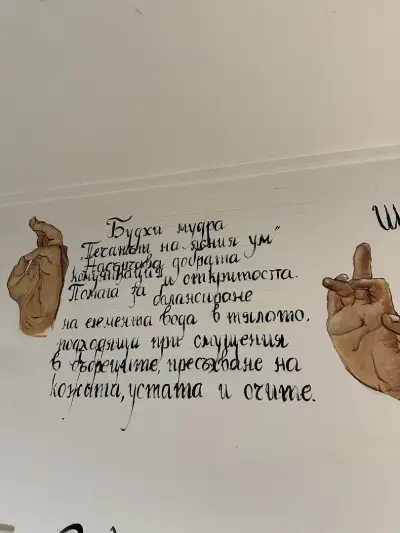 Будхи мудра
„Печатът на ясния ум“
Насърчава добрата
комуникация и откритостта.
Помага за балансиране
на елемента вода в тялото.
подходяща при смущения
в бъбреците, пресъхване на
кожата, устата и очите.
Ш